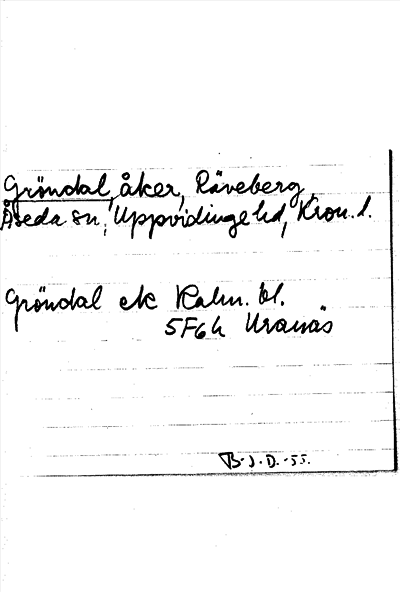 Gröndal, åker, Räveberg,
Åseda sn, Uppvidinge hd, Kron. l.
Gröndal ek Kalm. bl.
5F6h Uranäs
B.J.D.-55.